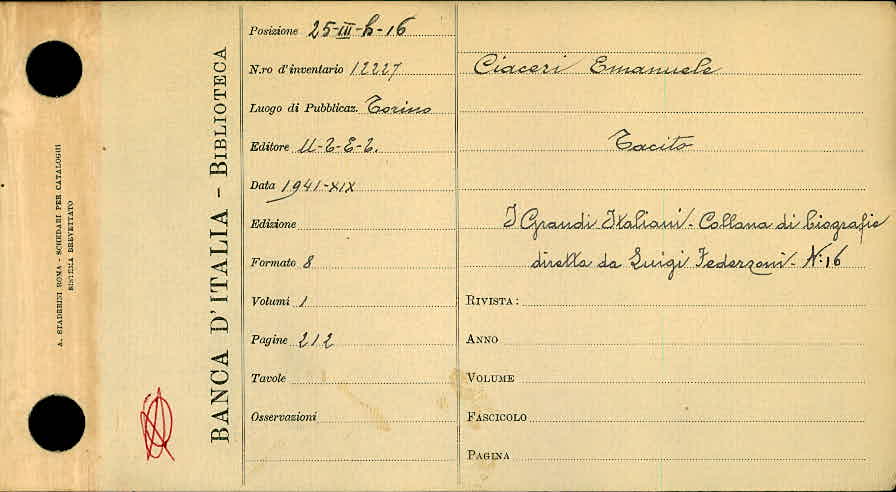 A. STADERINI ROMA - SCHEDARI PER CATALOGHI
SISTEMA BREVETTATO
BANCA D'ITALIA - BIBLIOTECA
Posizione 25-III-b-16
N.ro d'inventario 12227
Luogo di Pubblicaz. Torino
Editore U-T-E-T.
Data 1941-XIX
Edizione
Formato 8
Volumi 1
Pagine 212
Tavole
Osservazioni
Ciaceri Emanuele
Tacito
I Grandi Italiani - Collana di biografie
diretta da Luigi Federzoni - N: 16
RIVISTA:
ANNO
VOLUME
FASCICOLO
PAGINA